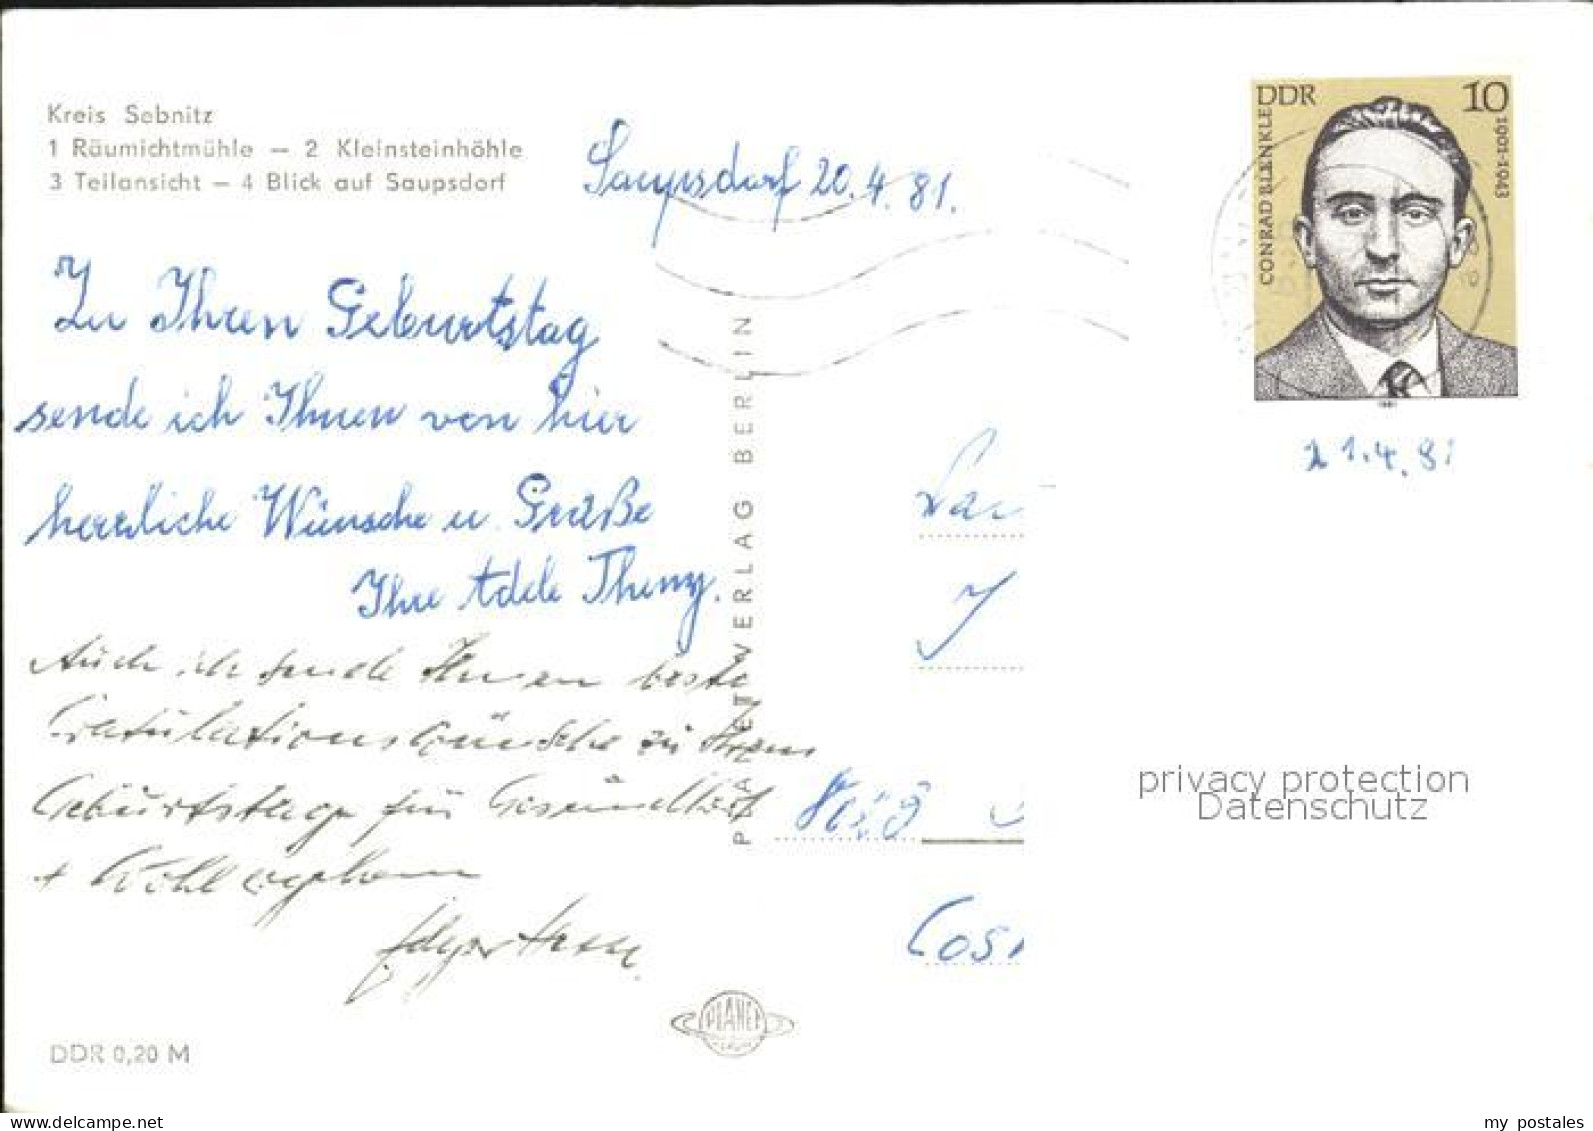 Kreis Sebnitz
1 Räumichtmühle — 2 Kleinsteinhöhle
3 Teilansicht — 4 Blick auf Saupsdorf
Saupsdorf 20.4.81.
DDR 10
CONRAD BLENKLE
1901-1943
21.4.81
Zu Ihren Geburtstag
sende ich Ihnen von hier
herzliche Wünsche u. Grüße
Ihre Adele Theny.
Auch ich sende Ihnen beste
Gratulationswünsche zu Ihrem
Geburtstage für Gesundheit
+ Wohlergehen
PLANET-VERLAG BERLIN
8019
Cos
privacy protection
Datenschutz
PLANET
DDR 0,20 M
www.delcampe.net
my_postales